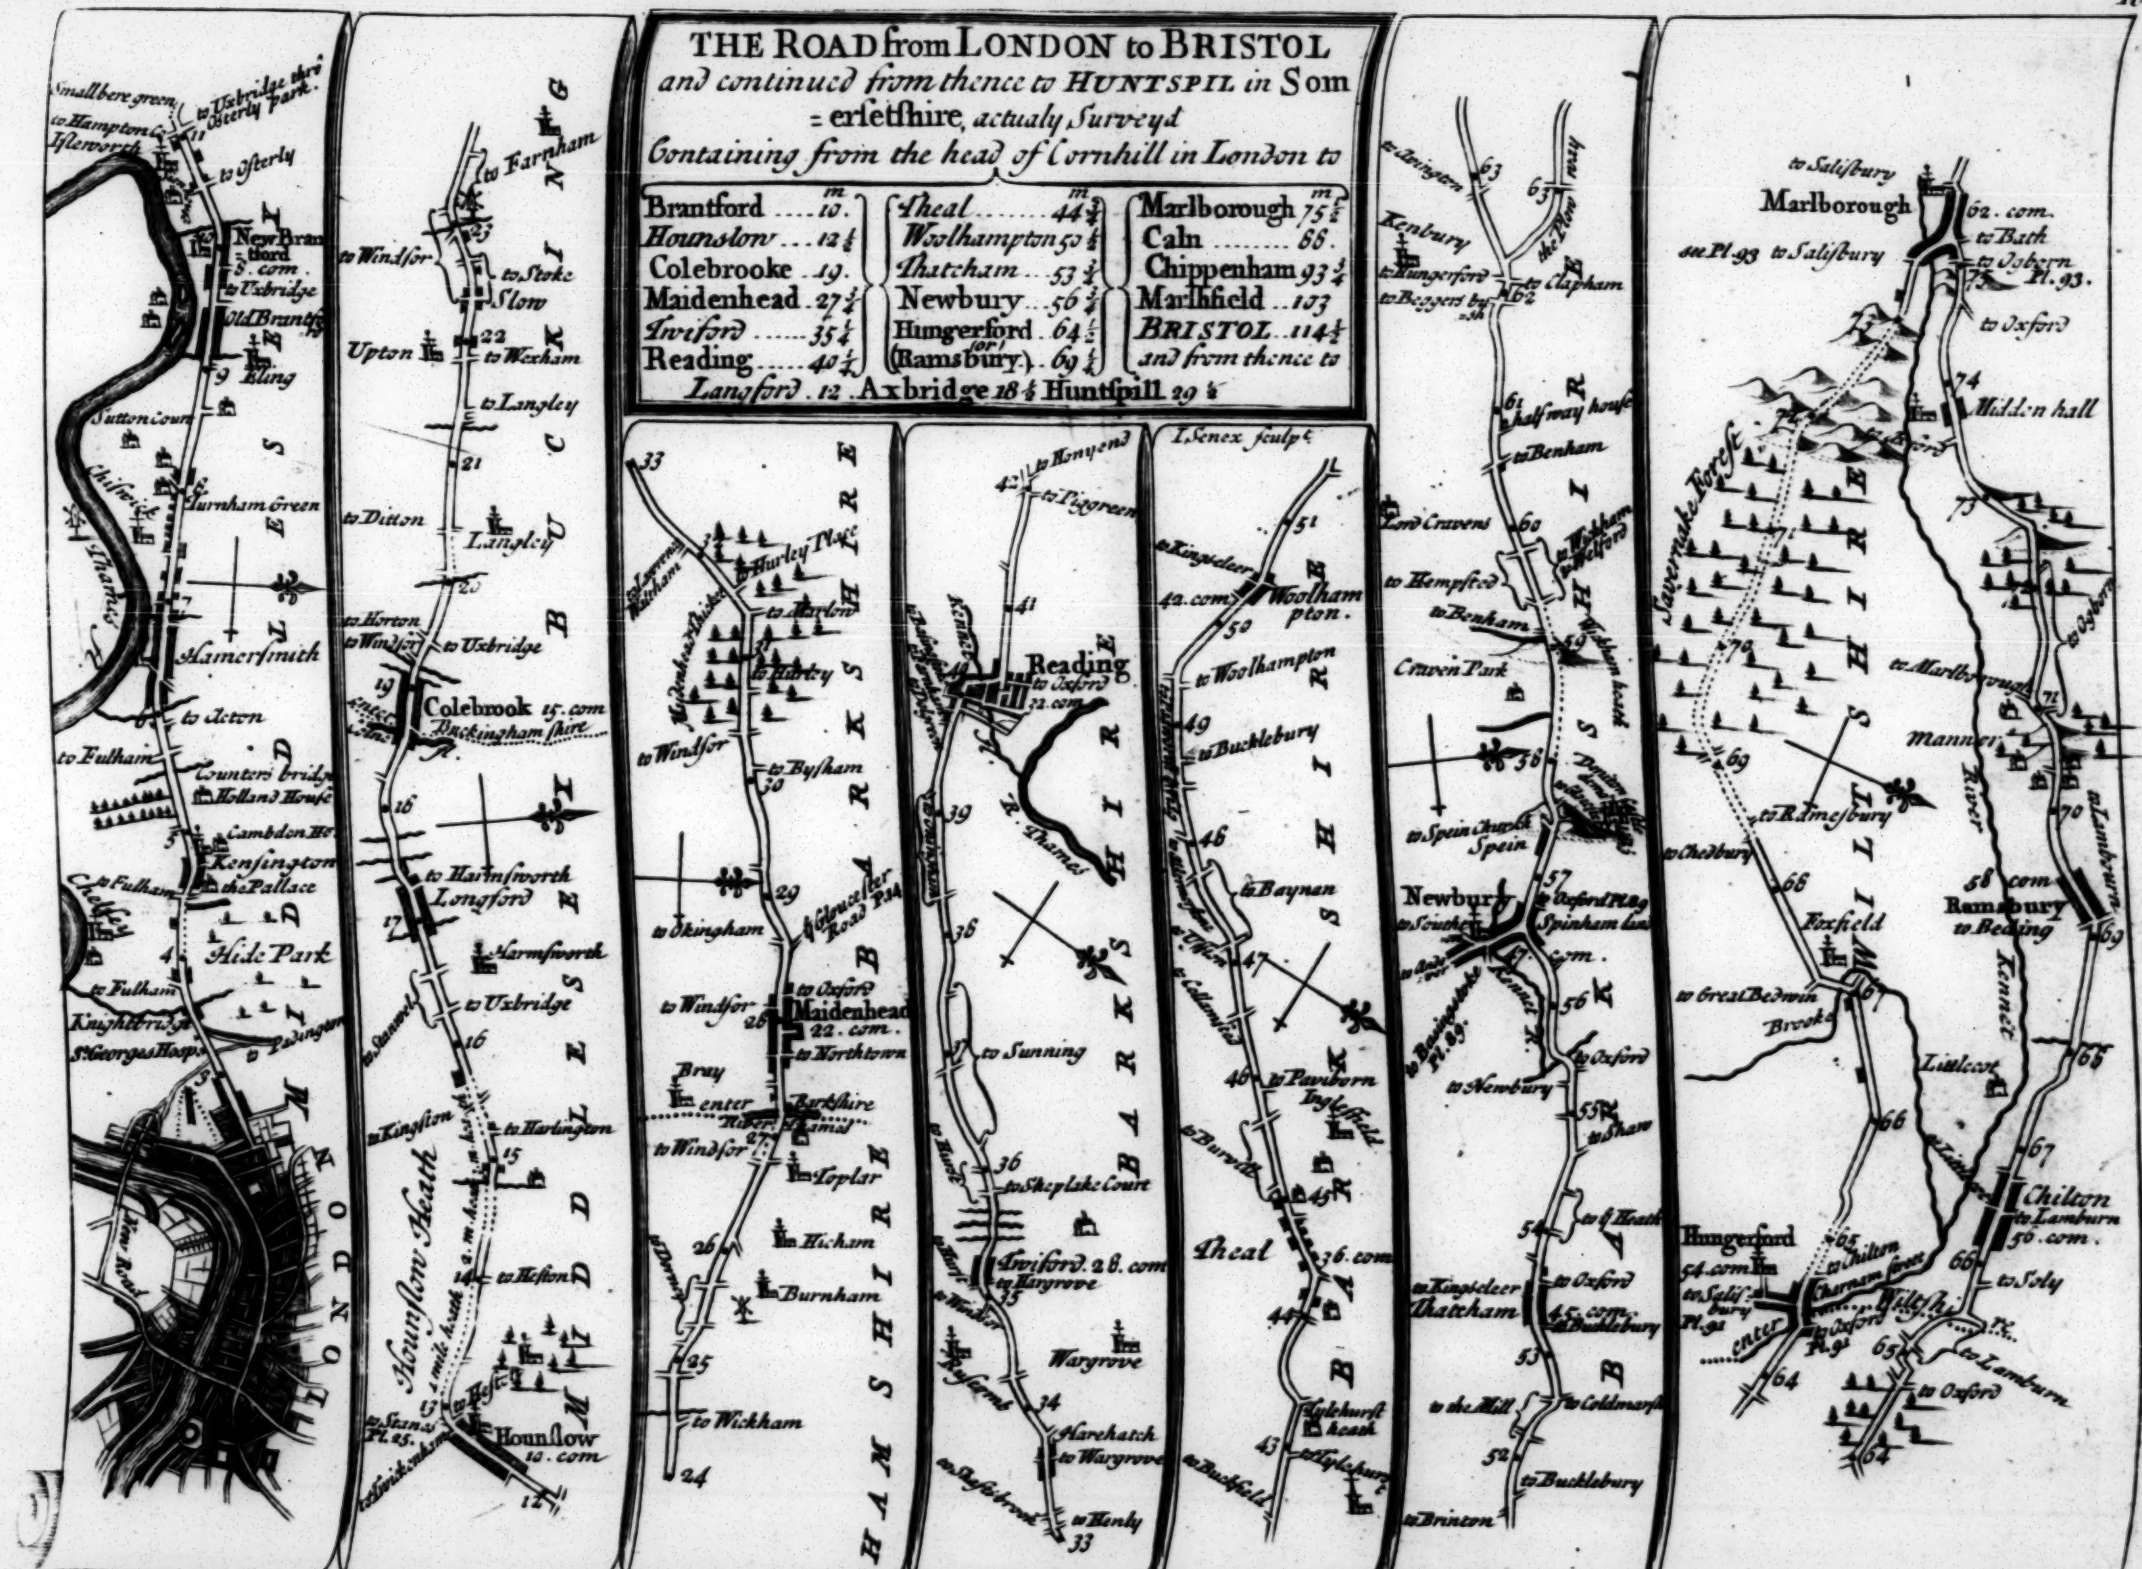 THE ROAD from LONDON to BRISTOL
and continued from thence to HUNTSPIL in Som
=ersetshire, actualy Survey'd
Containing from the head of Cornhill in London to
m m m
Brantford .... 10.
Hounslow ... 12½
Colebrooke .. 19.
Maidenhead . 27¾
Twiford ...... 35¼
Reading ..... 40¼
Theal ....... 44¾
Woolhampton 50½
Thatcham ... 53¾
Newbury ... 56¾
Hungerford . 64½
(or)
(Ramsbury). 69½
Marlborough 75½
Caln ........ 88.
Chippenham 93¾
Marshfield .. 103
BRISTOL .. 114½
and from thence to
Langford . 12 . Axbridge 18½ Huntspill 29½
Smallbere green
to Uxbridge thro
Osterly park.
to Hampton C.
Isleworth
11
to Osterly
New Bran
tford
8. com.
to Uxbridge
Old Brantfo
rd
9
Eling
Sutton Court
Chiswick
8
Turnham Green
Thamis R.
7
Hamersmith
6
to Acton
to Fulham
Counters bridge
Holland House
5
Cambden Ho.
Kensington
to Fulham
the Pallace
Chelsey
4
Hide Park
to Fulham
Knightbridge
St. Georges Hosp.
to Padington
3
New Road
LONDON
MIDDLESEX
to Farnham
23
to Windsor
to Stoke
Slow
22
Upton
to Wexham
to Langley
21
to Ditton
Langley
20
to Horton
to Windsor
to Uxbridge
19
Colebrook 15. com
enter
Buckingham shire
18
to Harmsworth
Longford
17
Harmsworth
to Stanwel
to Uxbridge
16
to Kingston
to Harlington
15
Hounslow Heath
14
to Heston
13
to Heston
to Stanes
Pl. 25.
Hounslow
10. com
to Twickenham
12
BUCKING
MIDDLESEX
33
32
to Hurley Place
to Lawrence
Waltham
Maidenhead Thicket
to Marlow
31
to Hurley
to Windsor
to Bysham
30
29
to Okingham
to Gloucester
Road P.14
to Oxford
to Windsor
28
Maidenhead
22. com.
to Northtown
Bray
enter
Barkshire
River Thames
27
to Windsor
Toplar
26
Hicham
to Dorney
Burnham
25
to Wickham
24
BARKSHIRE
HAMSHIRE
42
to Honyend
to Piggreen
41
Kennet
40
Reading
to Oxford
32. com
R. Thames
39
38
37
to Sunning
36
to Hurst
to Sheplake Court
Twiford. 28. com
to Hurst
to Hargrove
35
to Windsor
Wargrove
34
Harehatch
to Wargrove
to Shotsbrook
to Henly
33
BARKSHIRE
I. Senex sculpt.
51
to Kingscleer
42. com
Woolham
pton.
50
to Woolhampton
49
to Bucklebury
48
to Baynan
to Ufton
47
46
to Paviborn
Inglesfield
to Burvill
45
Theal
36. com
44
Tylehurst
heath
43
to Tylehurst
to Buckfield
BARKSHIRE
to Avington
63
63
the Plow way
Kenbury
to Hungerford
to Clapham
to Beggers bu
sh
62
61
halfway house
to Benham
Lord Cravens
60
to Wickham
to Welford
to Hempsted
to Benham
59
Wickham heath
Craven Park
58
to Spein Church
Spein
57
Newbury
to Oxford Pl.89
Spinham land
47. com.
to Basingstoke
Pl. 89.
Kennet R.
56
to Oxford
to Newbury
55
to Shaw
54
to ye Heath
to Kingscleer
to Oxford
Thatcham
45. com.
to Bucklebury
53
to the Mill
to Coldmarsh
52
to Bucklebury
to Brinton
BARKSHIRE
to Salisbury
Marlborough
62. com.
to Bath
see Pl. 93 to Salisbury
to Ogborn
Pl. 93.
75
to Oxford
74
Midden hall
73
Savernake Forest
to Ogborn
71
70
to Marlborough
Manner
River
Kennet
69
70
to Ramesbury
to Lamburn
to Chedbury
68
58 com
Ramsbury
to Beding
Foxfield
69
67
to Great Bedwin
Brooke
68
Littlecot
66
67
to Littlecot
Chilton
to Lamburn
56. com.
Hungerford
54. com
65
to Chilton
Charnam street
66
to Soly
to Salis
bury
Pl. 91
Wiltsh
re
to Oxford
Pl. 91
enter
65
to Lamburn
64
to Oxford
64
WILTSHIRE